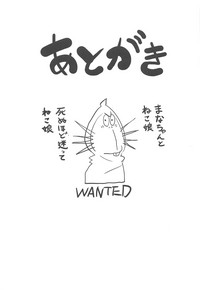 あとがき
まなちゃんと
ねこ娘
死ぬほど迷って
ねこ娘
WANTED